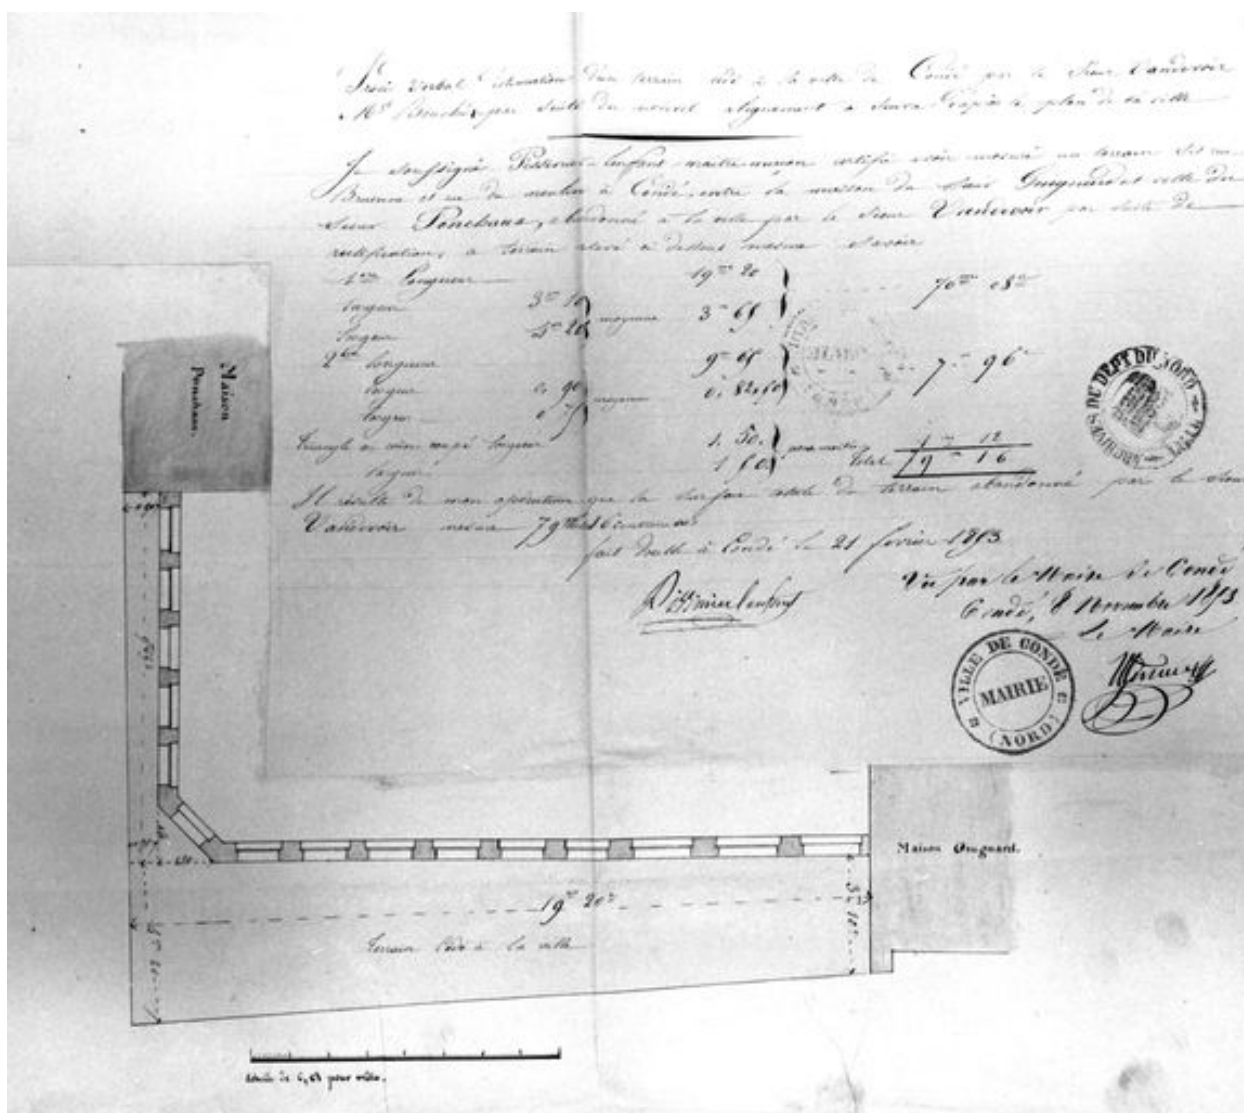 Procès Verbal d'estimation d'un terrain cédé à la ville de Condé par le Sieur Vandervoir
par suite du nouvel alignement à suivre d'après le plan de la ville
Je soussigné Pissonier-Lenfant maitre maçon certifie avoir mesuré un terrain sis rue
et rue du moulin à Condé, entre la maison du Sieur Guignard et celle du
Sieur Ponchaux, abandonné à la ville par le Sieur Vandervoir par suite de
rectification, ce terrain mesure Savoir
longueur 19m 20 70m 08
largeur 3m 10 moyenne 3m 65
largeur 4m 20
longueur 9m 65 7m 96
largeur 0. 90 moyenne 0. 82,50
largeur 0. 75
Triangle au coin coupé longueur 1. 50. pour moitié 1m 12
largeur 1. 50 Total 79m 16
Il résulte de mon opération que la surface totale du terrain abandonné par le Sieur
Vandervoir mesure 79 16 centimètres
fait double à Condé le 21 février 1853
Vu par le Maire de Condé
Condé, 8 Novembre 1853
Le Maire
VILLE DE CONDÉ
MAIRIE
(NORD)
ARCHIVES DU DEPT DU NORD
LILLE
Maison
Ponchaux.
Maison Guignard.
19m 20c
3m 10c
1.50
terrain cédé à la ville
Echelle de 0,01 pour mètre.